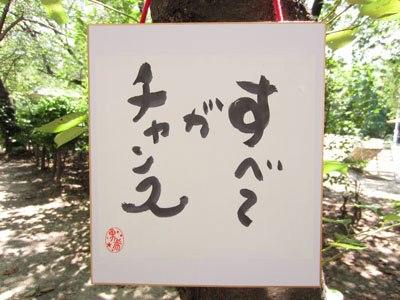 すべて
が
チャンス